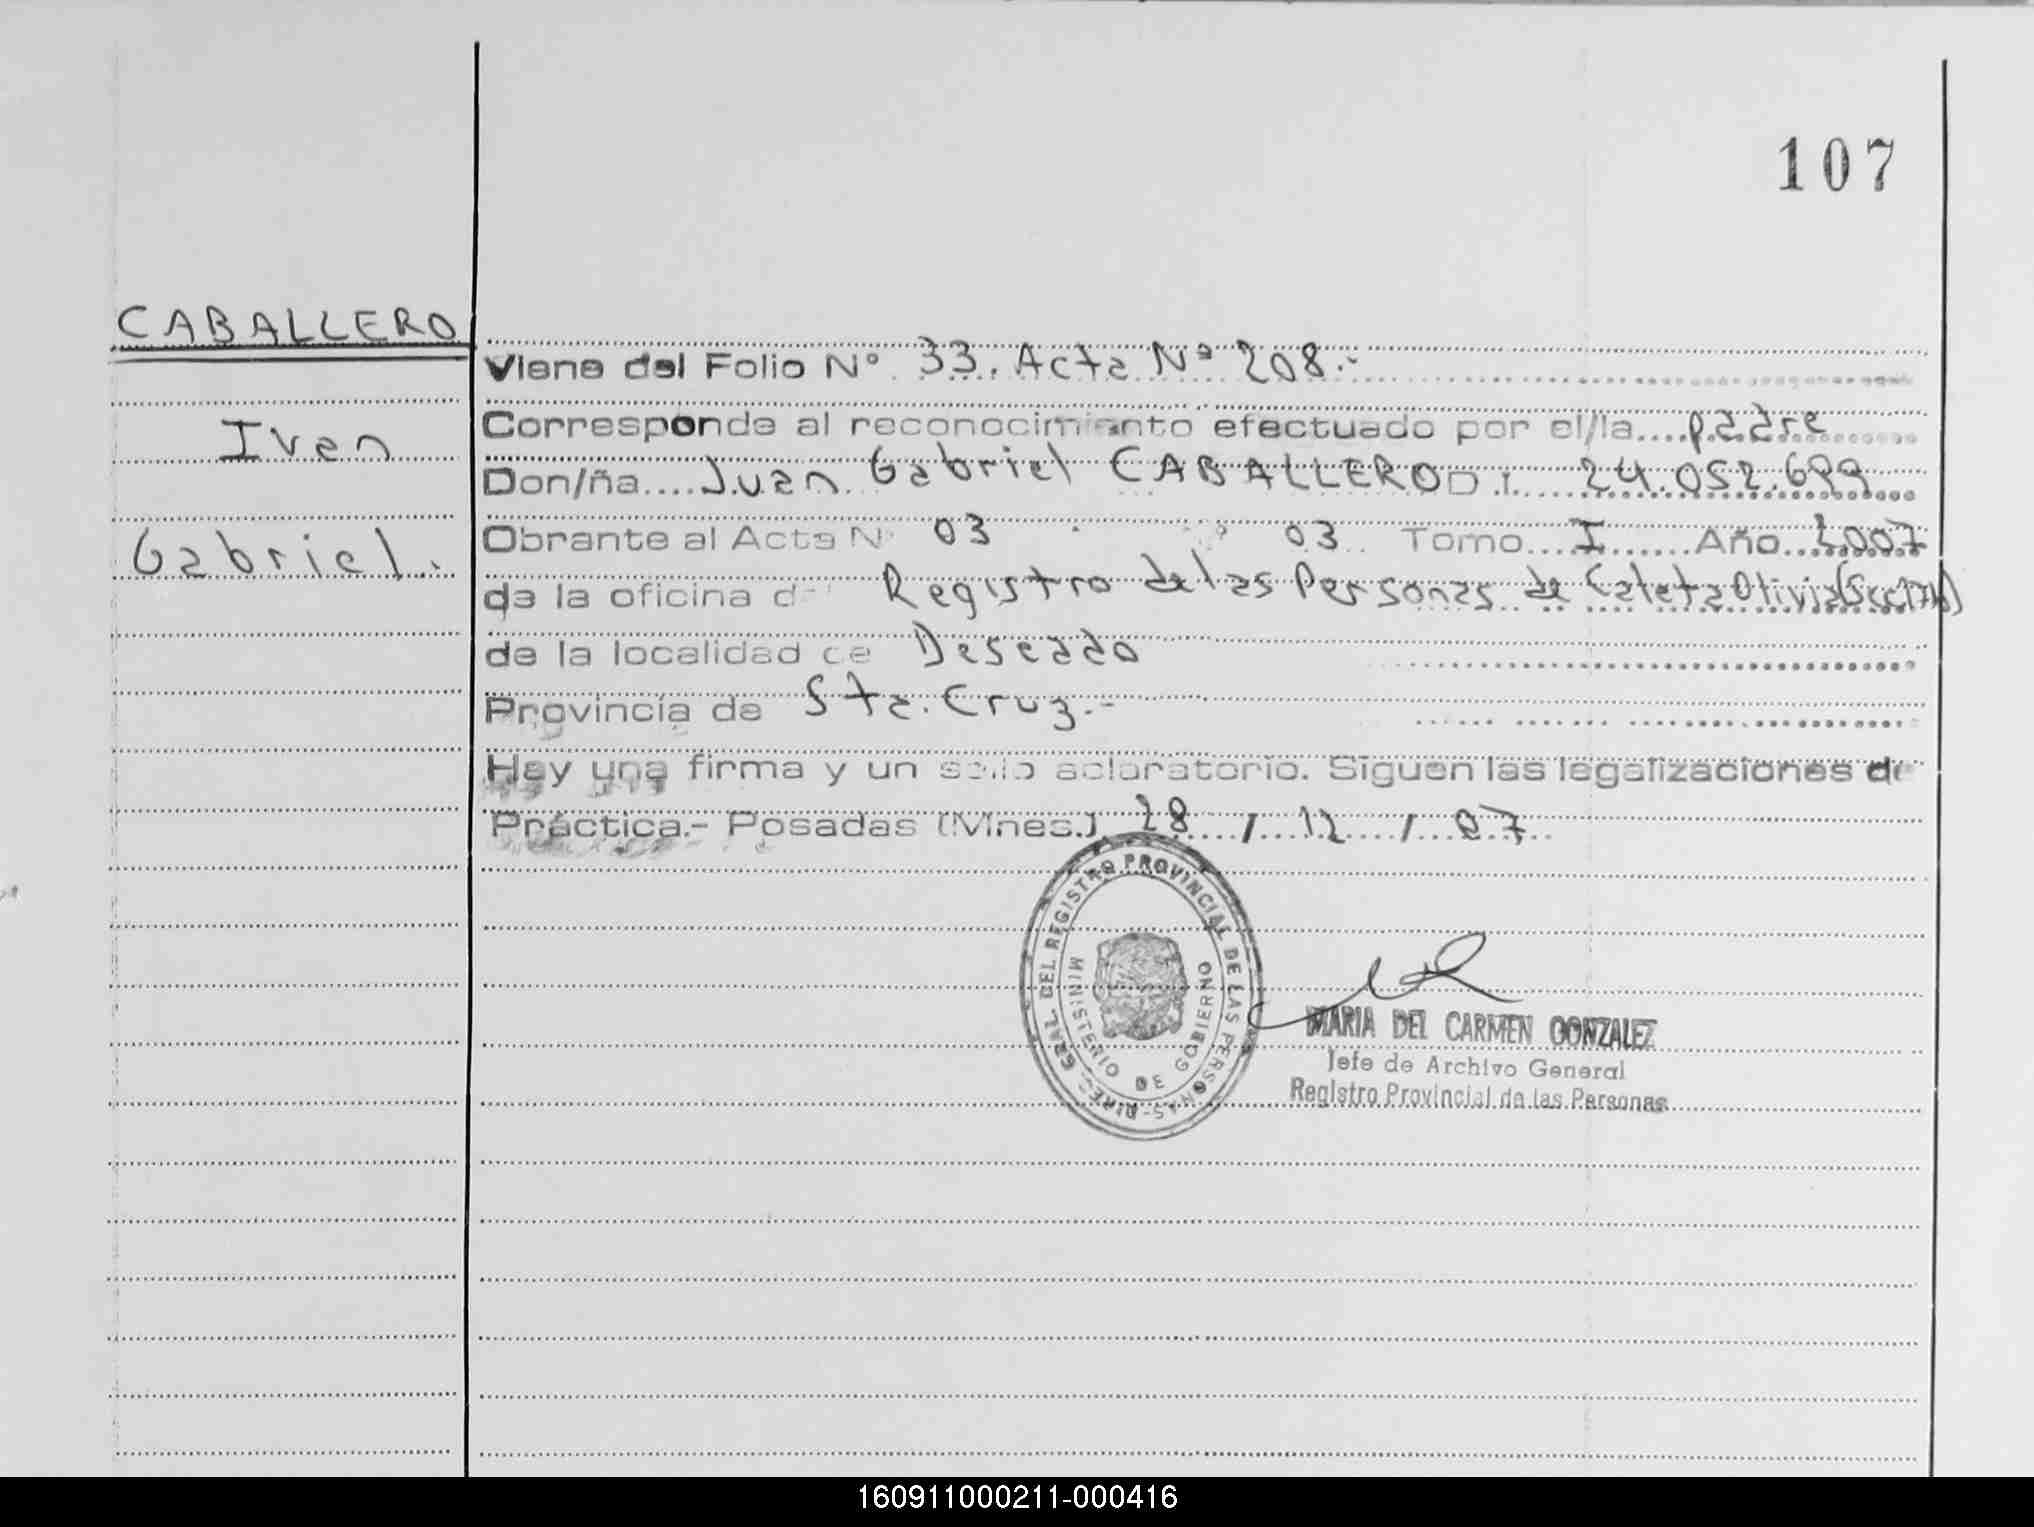 107
CABALLERO
Ivan
Gabriel.
Viene del Folio Nº 33. Acta Nº 208.-
Corresponde al reconocimiento efectuado por el/la....padre
Don/ña....Juan Gabriel CABALLERO D.I. 24.052.699
Obrante al Acta Nº 03 º 03 Tomo....I......Año 2.007
de la oficina de Registro de las Personas de Caleta Olivia
de la localidad de Deseado
Provincia de Sta. Cruz.-
Hay una firma y un sello aclaratorio. Siguen las legalizaciones de
Práctica.- Posadas (Mnes.) 28 / 12 / 07
DIREC. GRAL. DEL REGISTRO PROVINCIAL DE LAS PERSONAS-
MINISTERIO DE GOBIERNO
MARIA DEL CARMEN GONZALEZ
Jefe de Archivo General
Registro Provincial de las Personas
160911000211-000416